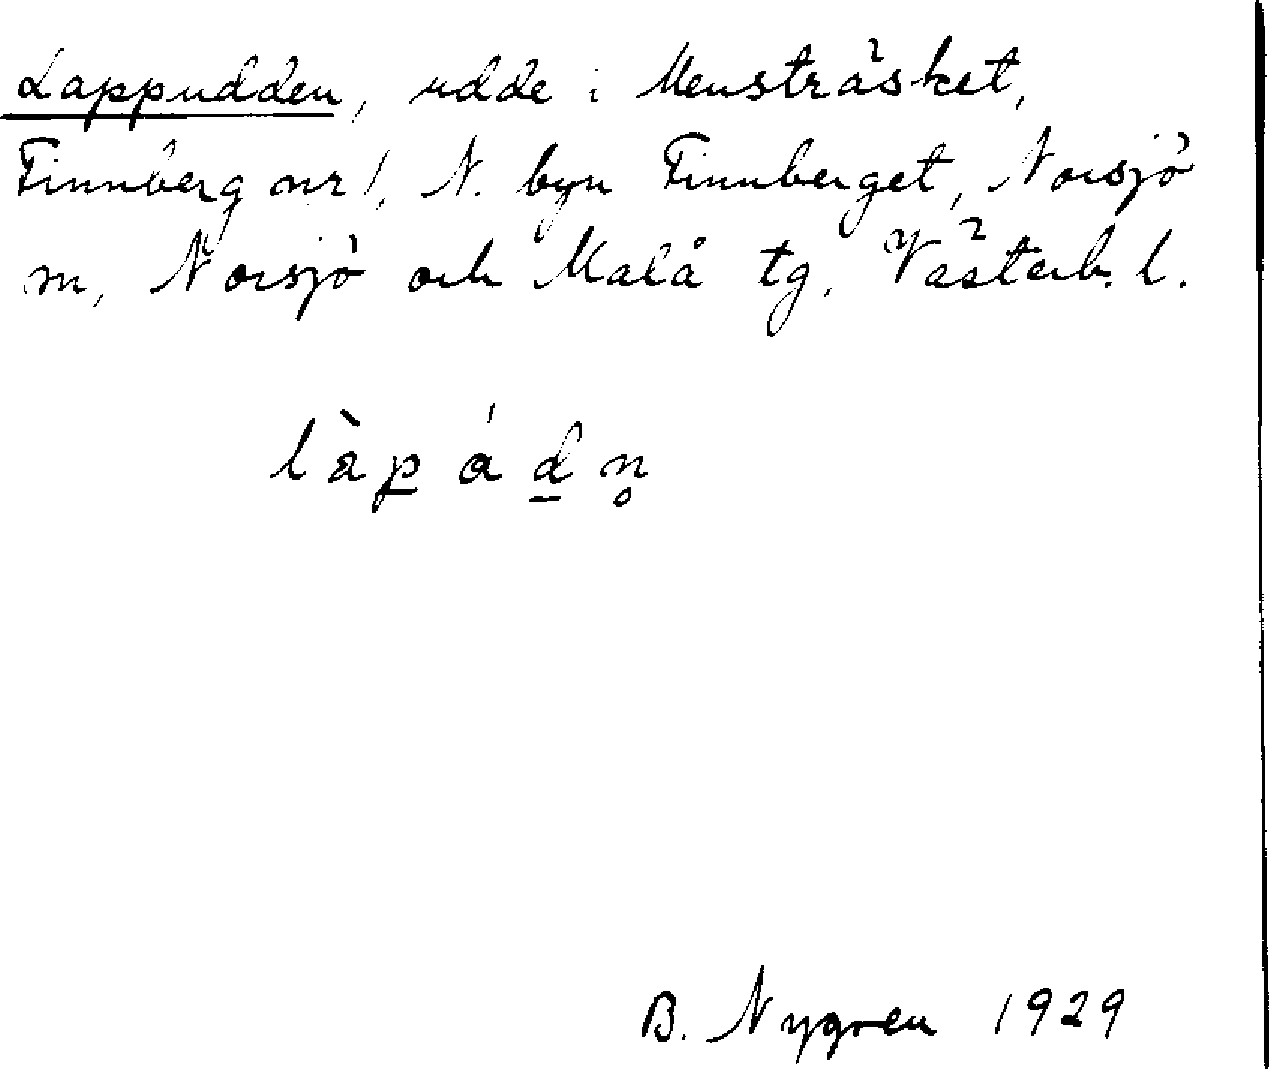 Lappudden, udde i Mensträsket,
Finnberg nr 1, N. byn Finnberget, Norsjö
sn, Norsjö och Malå tg, Västerb. l.
làpádn̥
B. Nygren 1929